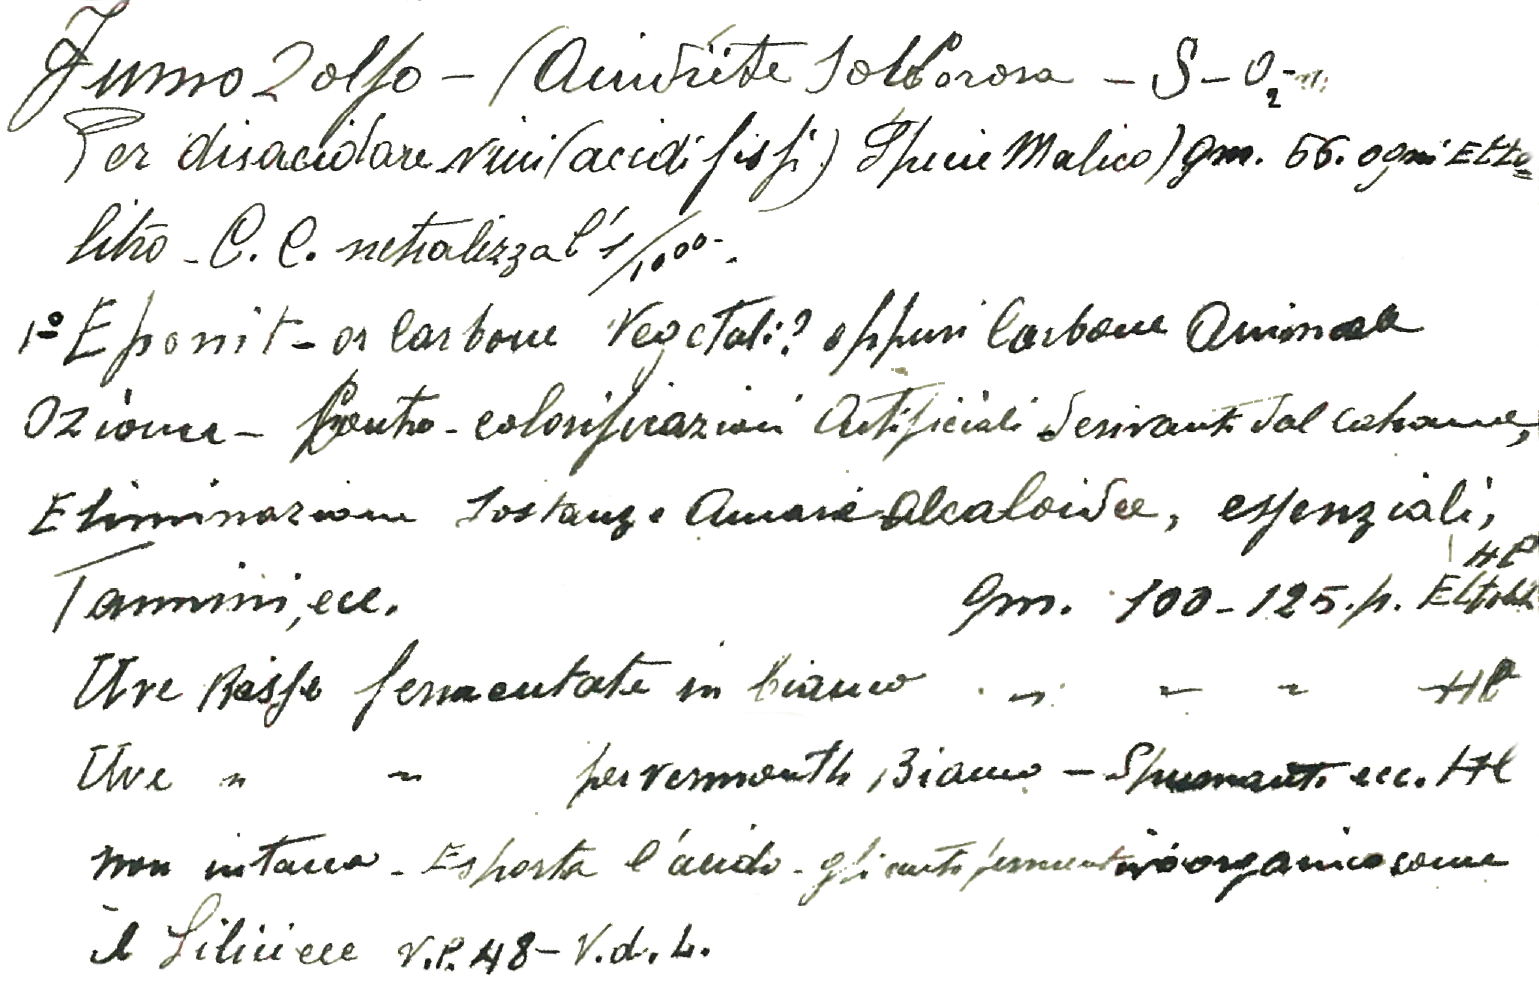 Fumo Zolfo - (Anidrite Solforosa - S - O2 -
Per disacidare vini (acidi fissi) Specie Malico) gm. 66. ogni Etto=
litro - C.C. netralizza l'1/1000 -.
1º Eponit - or Carbone Vegetali? oppuri Carbone Animale
Ozione - Contro - colorificazioni Artificiali derivanti dal catrame,
Eliminazione Sostanze Amare alcaloidee, essenziali,
Tannini, ecc. gm. 100 - 125. p. Ettol. HL
Uve Rosse fermentate in bianco " " " HL
Uve " " per vermouth Bianco - Spumanti ecc. HL
non intacca - Esporta l'acido - gli antifermentivi organici come
il Silici ecc V.P. 48 - V.d.L.